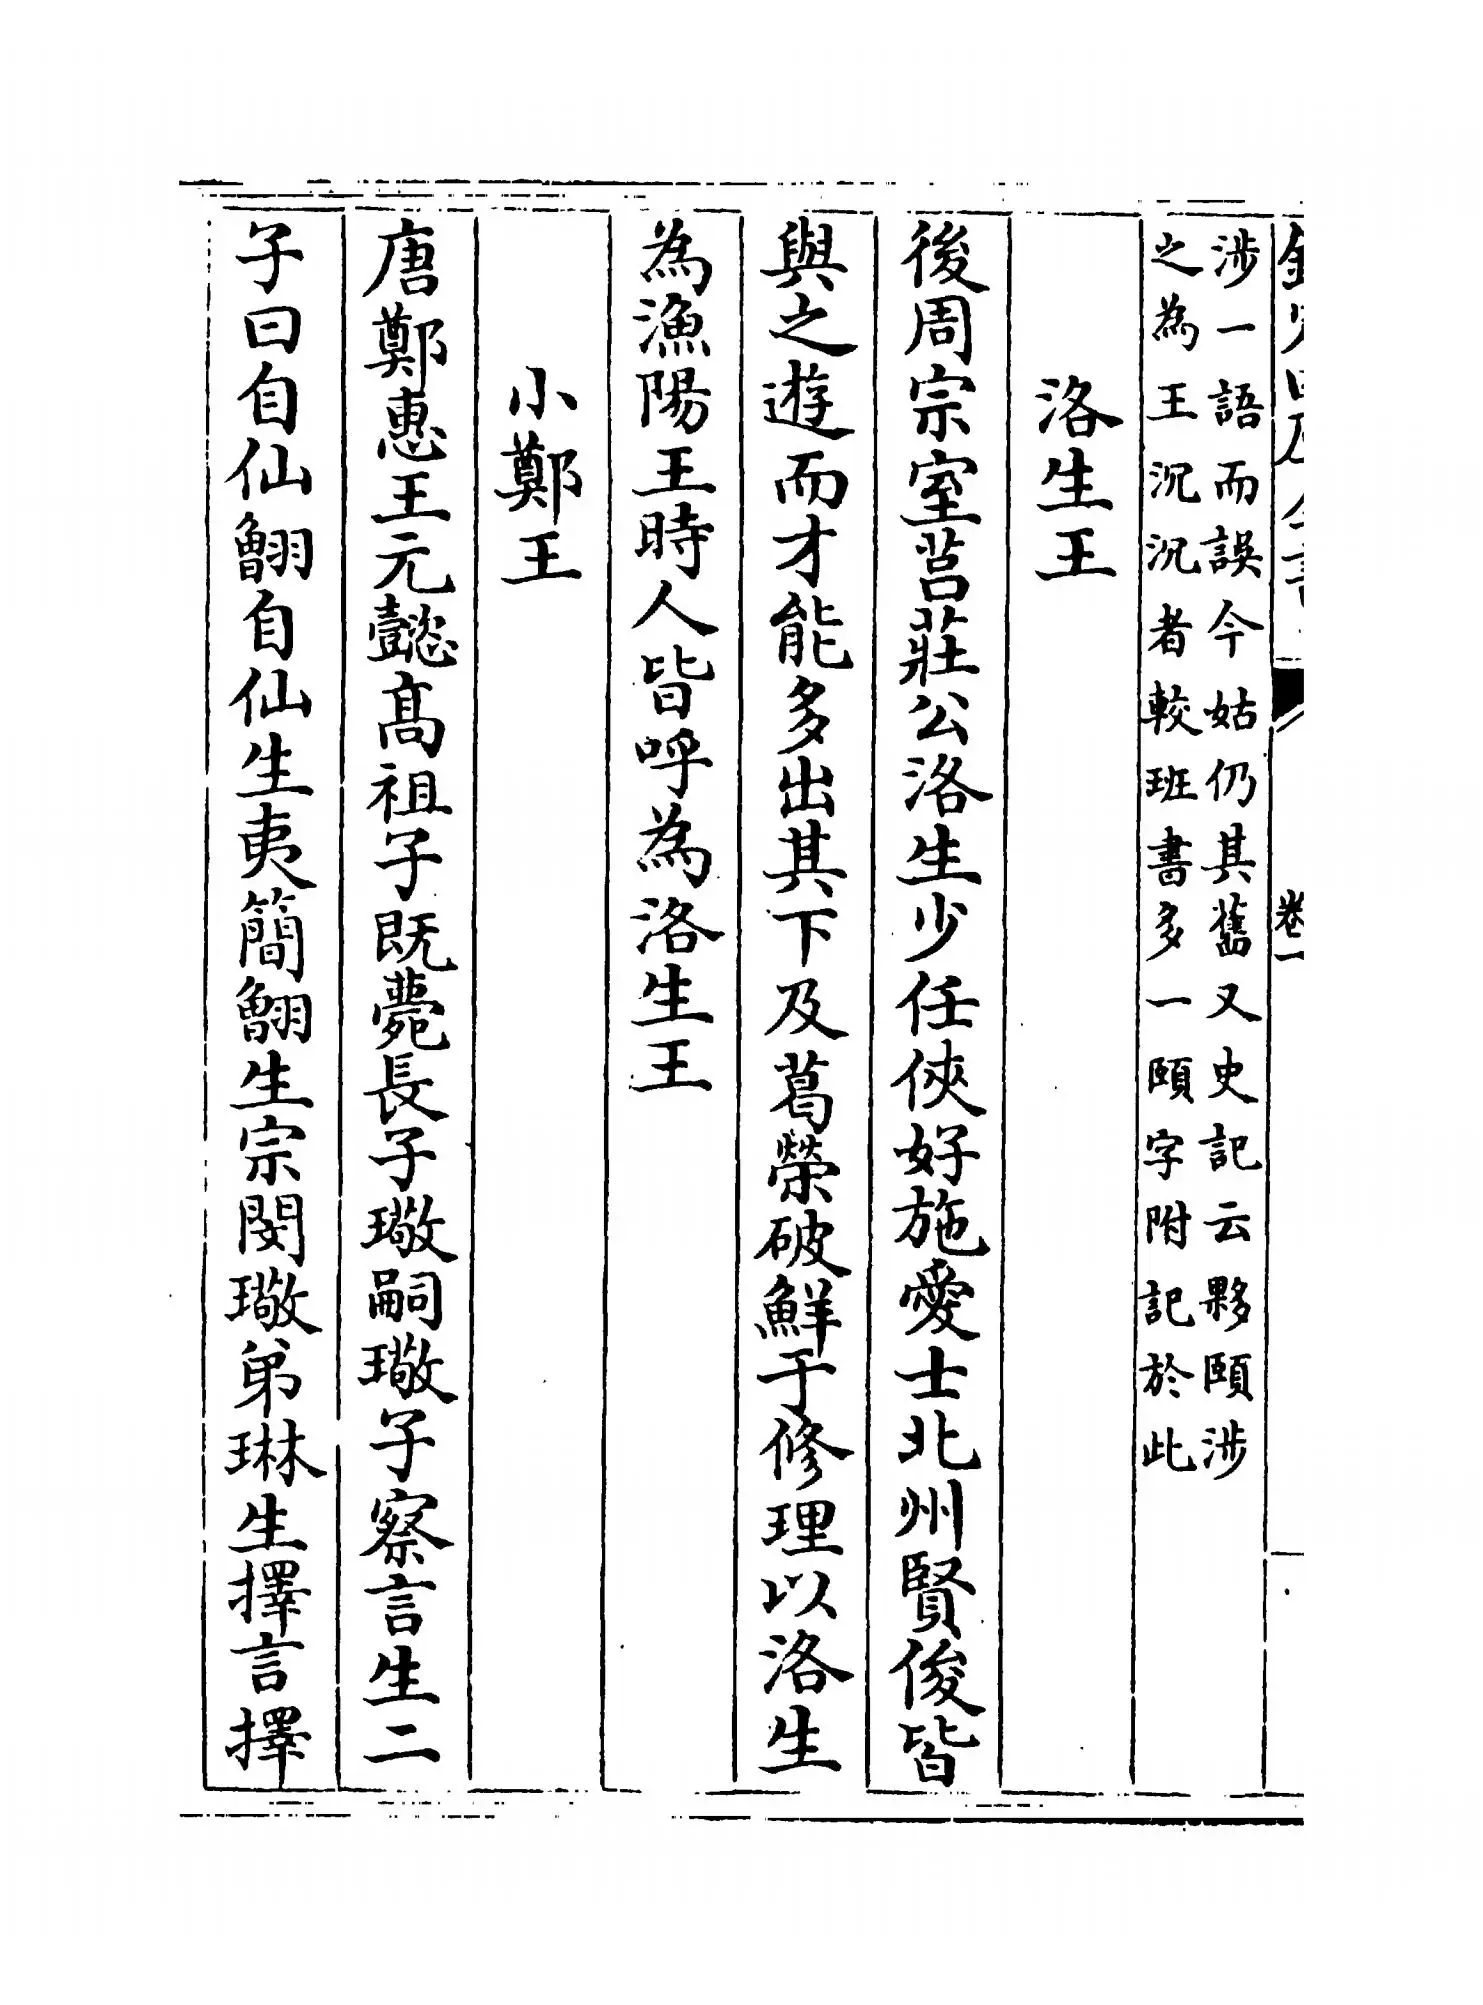 欽定四庫全書
卷一
涉一語而誤今姑仍其舊又史記云夥頤涉
之為王沉沉者較班書多一頤字附記於此
洛生王
後周宗室莒莊公洛生少任俠好施愛士北州賢俊皆
與之遊而才能多出其下及葛榮破鮮于修理以洛生
為漁陽王時人皆呼為洛生王
小鄭王
唐鄭惠王元懿髙祖子既薨長子璥嗣璥子察言生二
子曰自仙翻自仙生夷簡翻生宗閔璥弟琳生擇言擇